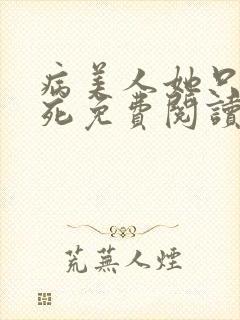 病美人她只
死免費閱讀
荒蕪人煙